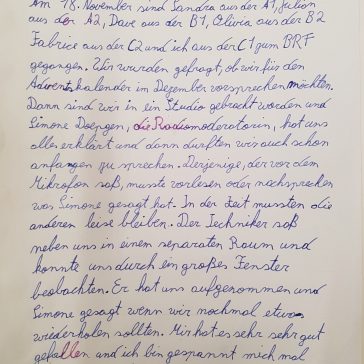 Am 18. November sind Sandra aus der A1, Julian
aus der A2, Dave aus der B1, Olivia aus der B2
Fabrice aus der C2 und ich aus der C1 zum BRF
gegangen. Wir wurden gefragt, ob wir für den
Adventskalender im Dezember vorsprechen möchten.
Dann sind wir in ein Studio gebracht worden und
Simone Doepgen, die Radiomoderatorin, hat uns
alles erklärt und dann durften wir auch schon
anfangen zu sprechen. Derjenige, der vor dem
Mikrofon saß, musste vorlesen oder nachsprechen
was Simone gesagt hat. In der Zeit mussten die
anderen leise bleiben. Der Techniker saß
neben uns in einem separaten Raum und
konnte uns durch ein großes Fenster
beobachten. Er hat uns aufgenommen und
Simone gesagt wenn wir nochmal etwas
wiederholen sollten. Mir hat es sehr sehr gut
gefallen und ich bin gespannt mich mal